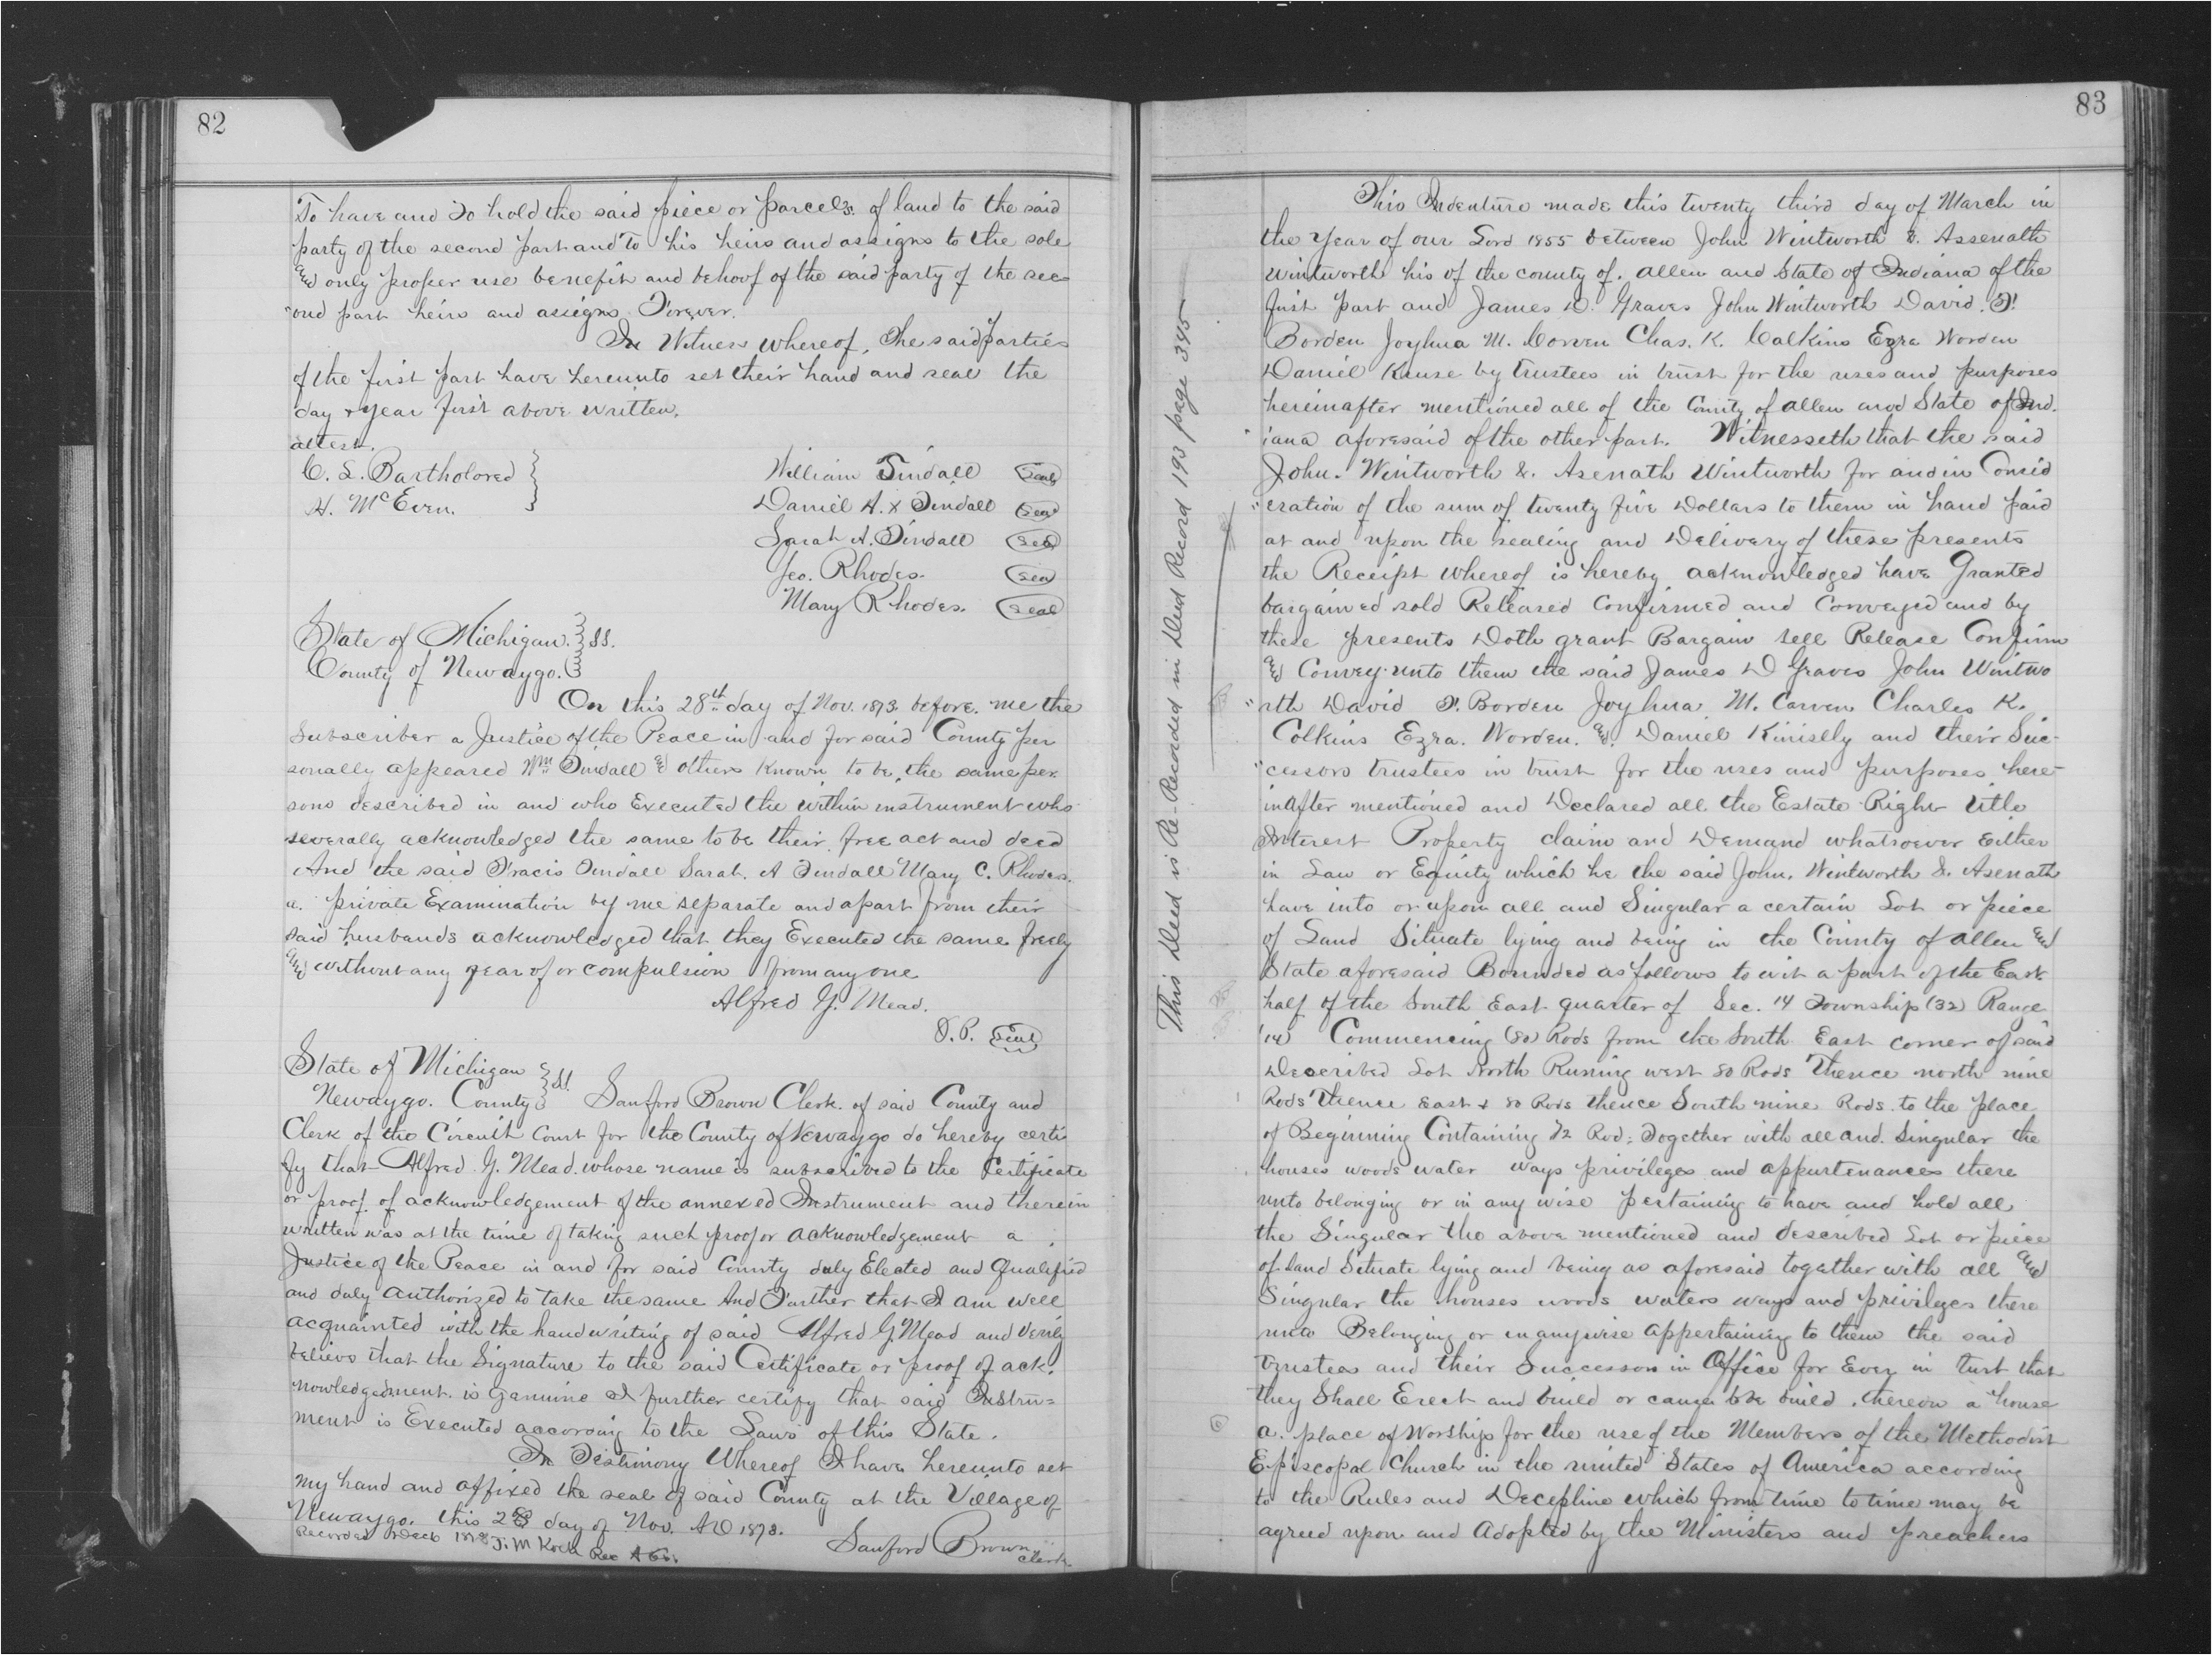 82
To have and To hold the said piece or parcels of land to the said
party of the second part and To his heirs and assigns to the sole
and only proper use benefit and behoof of the said party of the sec
"ond part heirs and assigns Forever.
In Witness whereof, The said parties
of the first part have hereunto set their hand and seal the
day & year first above written.
attest.
C. L. Bartholored
H. McEven.
William Tindall Seal
Daniel H. x Tindall Seal
Sarah A. Tindall Seal
Geo. Rhodes. Seal
Mary Rhodes. Seal
State of Michigan. } SS.
County of Newaygo. }
On this 28th day of Nov. 1873. before me the
Subscriber a Justice of the Peace in and for said County per
sonally appeared Wm Tindall & others known to be, the same per
sons described in and who Executed the within instrument who
severally acknowledged the same to be their free act and deed
And the said Tracis Tindall Sarah. A Tindall Mary C. Rhodes.
a. private Examination by me separate and apart from their
said husbands acknowledged that they Executed the same freely
and without any fear of or compulsion from any one
Alfred G. Mead.
J.P. Seal
State of Michigan
Newaygo. County } SS Sanford Brown Clerk. of said County and
Clerk of the Circuit Court for the County of Newaygo do hereby certi
fy that Alfred G. Mead whose name is subscribed to the Certificate
or proof of acknowledgement of the annexed Instrument and therein
written was at the time of taking such proof or acknowledgement a
Justice of the Peace in and for said County duly Elected and Qualified
and duly authorized to take the same And Further that I am well
acquainted with the handwriting of said Alfred G Mead and verily
believe that the Signature to the said Certificate or proof of ack.
nowledgement is genuine I further certify that said Instru=
ment is Executed according to the Laws of this State.
In Testimony Whereof I have hereunto set
my hand and affixed the seal of said County at the Village of
Newaygo. this 28 day of Nov. AD 1873.
Sanford Brown
Clerk.
Recorded Dec 1873 J. M Koch Rec A Co.
83
This Deed is Re-Recorded in Deed Record 193 page 345
This Indenture made this twenty third day of March in
the Year of our Lord 1855 between John Wintworth & Assenath
Wintworth his of the county of. Allen and State of Indiana of the
first part and James D. Graves John Wintworth David. F.
Borden Joyhua M. Corven Chas. K. Calkins Ezra Worden
Daniel Kouse by trustees in trust for the uses and purposes
hereinafter mentioned all of the County of Allen and State of Ind.
iana aforesaid of the other part. Witnesseth that the said
John. Wintworth &. Asenath Wintworth for and in Consid
"eration of the sum of twenty five Dollars to them in hand paid
at and upon the sealing and Delivery of these presents
the Receipt whereof is hereby acknowledged have Granted
bargained sold Released Confirmed and Conveyed and by
these presents Doth grant Bargain sell Release Confirm
and Convey unto them the said James D Graves John Wintwo
"rth David F. Borden Joyhua M. Corven Charles K.
Colkins Ezra. Worden. and. Daniel Kinislly and their Suc-
"cessors trustees in trust for the uses and purposes here-
inafter mentioned and Declared all the Estate Right title
Interest Property claim and Demand whatsoever Either
in Law or Equity which he the said John. Wintworth &. Asenath
have into or upon all and Singular a certain Lot or piece
of Land Situate lying and being in the County of Allen and
State aforesaid Bounded as follows to wit a part of the East
half of the South East quarter of Sec. 14 Township (32) Range
(14) Commencing (80) Rods from the South East corner of said
Described Lot North Runing west 80 Rods Thence north nine
Rods Thence East & 80 Rods thence South nine Rods to the place
of Beginning Containing 72 Rod; Together with all and. Singular the
houses woods water ways privileges and appurtenances there
unto belonging or in any wise pertaining to have and hold all
the Singular the above mentioned and described Lot or piece
of land Situate lying and being as aforesaid together with all and
Singular the houses woods waters ways and privileges there
unto Belonging or in anywise appertaining to them the said
trustees and their Successors in Office for Ever in turst that
they Shall Erect and build or cause to be build thereon a house
a. place of Worship for the use of the Members of the Methodist
Episcopal Church in the united States of America according
to the Rules and Decepline which from time to time may be
agreed upon and Adopted by the Ministers and preachers